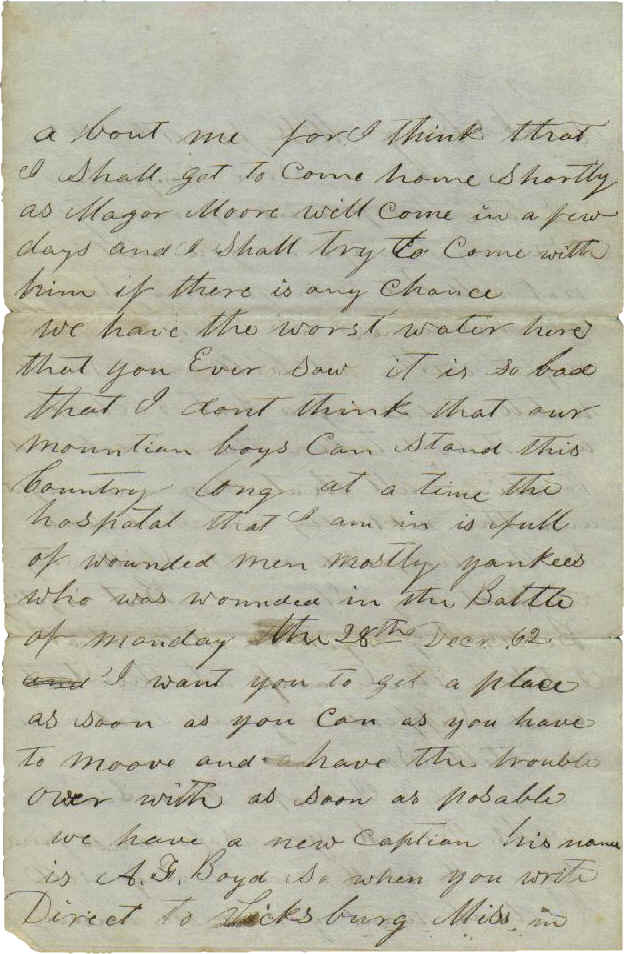 a bout me for I think that
I shall get to Come home shortly
as Magor Moore will Come in a few
days and I shall try to Come with
him if there is any Chance
we have the worst water here
that you Ever saw it is so bad
that I dont think that our
mountian boys Can stand this
Country long at a time the
hospatal that I am in is full
of wounded men mostly yankees
who was wounded in the Battle
of monday the 28th Decr. 62
and I want you to get a place
as soon as you Can as you have
to moove and have the trouble
over with as soon as posable
we have a new Caption his name
is A. F. Boyd so when you write
Direct to Vicksburg Miss. in